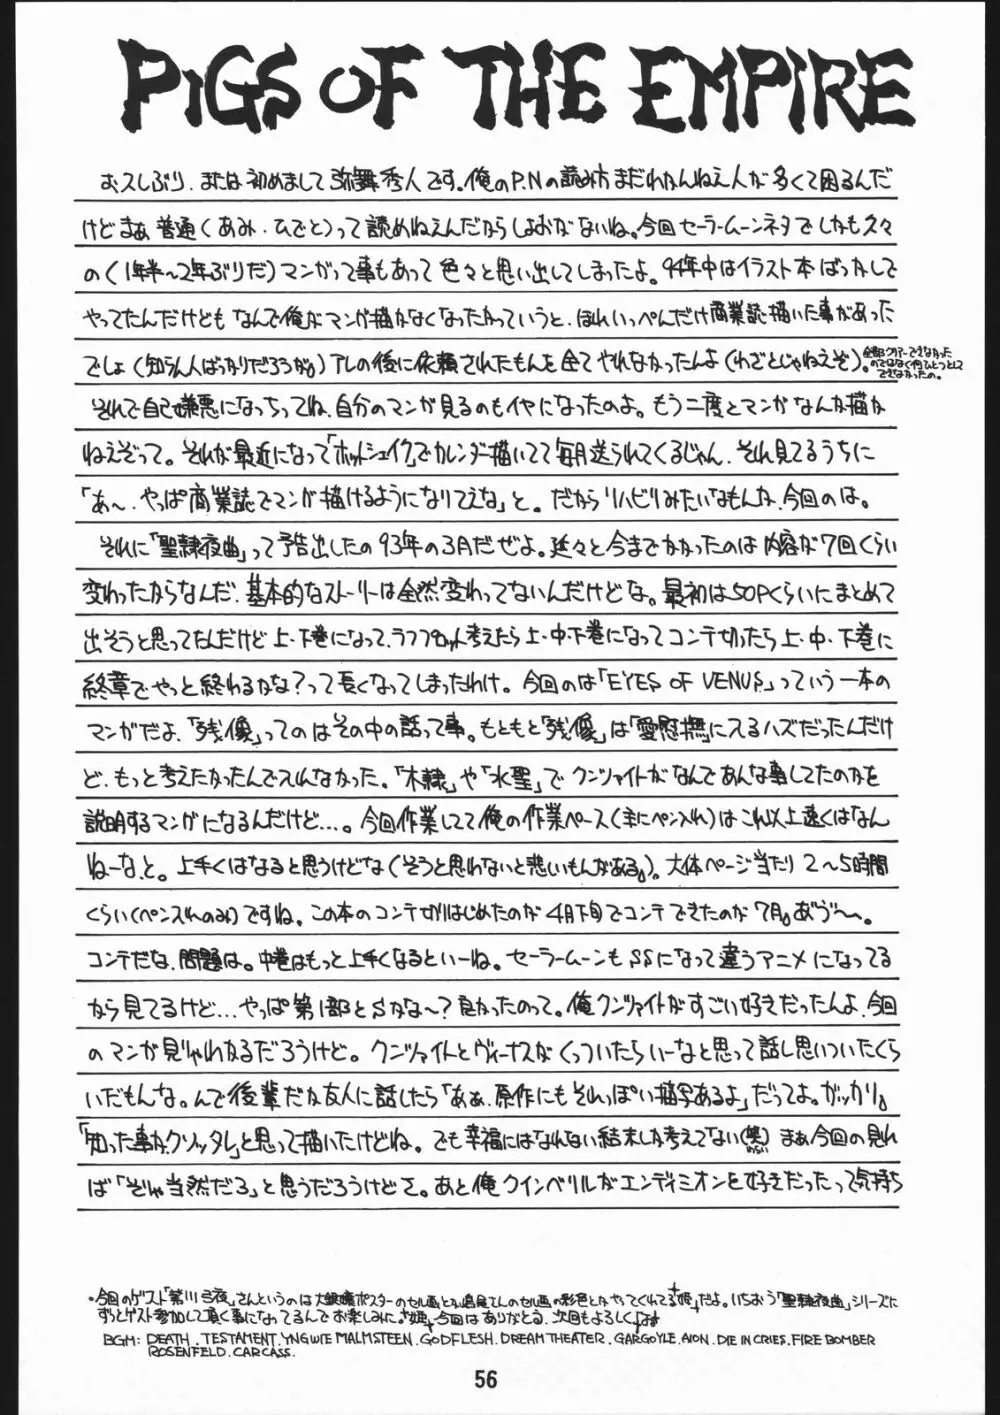 PIGS OF THE EMPIRE
お久しぶり、または初めまして弥舞秀人です。俺のP.Nの読み方まだわかんねえ人が多くて困るんだ
けどまぁ普通(あみ・ひでと)って読めねえんだからしょおがないね。今回セーラームーンネタでしかも久々
の(1年半〜2年ぶりだ)マンガって事もあって色々と思い出してしまったよ。94年中はイラスト本ばっかして
やってたんだけどもなんで俺がマンガ描かなくなったかっていうと、ほれいっぺんだけ商業誌描いた事があった
でしょ(知らん人ばっかりだろうが。)TLの後に依頼されたもんを全てやれなかったんよ(わざとじゃねえぞ)。
全部クリアーできなかった
のではなく何ひとつとして
できなかったの。
それで自己嫌悪になっちってね、自分のマンガ見るのもイヤになったのよ。もう二度とマンガなんか描か
ねえぞって。それが最近になって「ホットシェイク」でカレンダー描いてて毎月送られてくるじゃん、それ見てるうちに
「あ〜、やっぱ商業誌でマンガ描けるようになりてえな」と。だからリハビリみたいなもんか、今回のは。
それに「聖隷夜曲」って予告出したの93年の3月だぜよ。延々と今までかかったのは内容が7回くらい
変わったからなんだ、基本的なストーリーは全然変わってないんだけどな。最初は50Pくらいにまとめて
出そうと思ってたんだけど上・下巻になって、ラフプロット考えたら上・中・下巻になってコンテ切ったら上・中・下巻に
終章でやっと終わるかな?って長くなってしまったわけ。今回のは「EYES OF VENUS」っていう一本の
マンガだよ、「残像」ってのはその中の話って事。もともと「残像」は「愛慰撫」に入るハズだったんだけ
ど、もっと考えたかったんで入れなかった。「木隷」や「水聖」でクンツァイトがなんであんな事してたのかを
説明するマンガになるんだけど…。今回作業してて俺の作業ペース(主にペン入れ)はこれ以上速くはなん
ねーな、と。上手くはなると思うけどな(そうと思わないと悲しいもんがある。)。大体ページ当たり2〜5時間
くらい(ペン入れのみ)ですね。この本のコンテ切りはじめたのが4月下旬でコンテできたのが7月。あ゙ゔ〜。
コンテだな、問題は。中巻はもっと上手くなるといーね。セーラームーンもSSになって違うアニメになってる
から見てるけど…やっぱ第1部とSかな〜?良かったのって。俺クンツァイトがすごい好きだったんよ、今回
のマンガ見じゃわかるだろうけど。クンツァイトとヴィーナスがくっついたらいーなと思って話し思いついたくら
いだもんな。んで後輩だか友人に話したら「あぁ、原作にもそれっぽい描写あるよ」だってよ。ガッカリ。
「知った事かクソッタレ」と思って描いたけどね。でも幸福にはなれない結末しか考えてない(笑)まぁ今回の見れ
わらい
ば「そりゃ当然だろ」と思うだろうけどさ。あと俺クインベリルがエンディミオンを好きだったって気持ち
・今回のゲスト「紫川弓夜」さんというのは大銀嬢ポスターのセル画とか島尾さんのセル画の彩色とかやってくれてる"姫"だよ。いちおう「聖隷夜曲」シリーズに
ずっとゲスト参加して頂く事になってるんでお楽しみに。"姫"今回はありがとう、次回もよろしくします
BGM: DEATH. TESTAMENT. YNGWIE MALMSTEEN. GODFLESH. DREAM THEATER. GARGOYLE. AION. DIE IN CRIES. FIRE BOMBER
ROSENFELD. CARCASS.
56